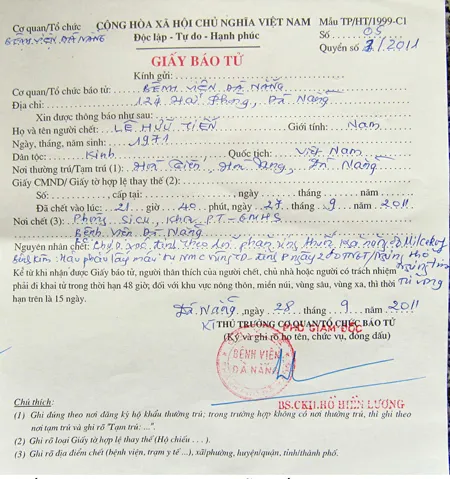 Cơ quan/Tổ chức CỘNG HÒA XÃ HỘI CHỦ NGHĨA VIỆT NAM Mẫu TP/HT/1999-C1
BỆNH VIỆN ĐÀ NẴNG Độc lập - Tự do - Hạnh phúc Số 05
Quyển số 2/2011
GIẤY BÁO TỬ
Kính gửi:
Cơ quan/Tổ chức báo tử: BỆNH VIỆN ĐÀ NẴNG
Địa chỉ: 124 Hải Phòng, Đà Nẵng
Xin được thông báo như sau:
Họ và tên người chết: LÊ HỮU TIẾN Giới tính: Nam
Ngày, tháng, năm sinh: 1971
Dân tộc: Kinh Quốc tịch: Việt Nam
Nơi thường trú/Tạm trú (1): Hòa Vang, Đà Nẵng
Giấy CMND/ Giấy tờ hợp lệ thay thế (2):
Số: , cấp tại: , ngày tháng năm
Đã chết vào lúc: 21 giờ 40 phút, ngày 27 tháng 9 năm 2011
Nơi chết (3): Phòng khoa PT-GMHS
Bệnh viện Đà Nẵng
Nguyên nhân chết:
Kể từ khi nhận được Giấy báo tử, người thân thích của người chết, chủ nhà hoặc người có trách nhiệm
phải đi khai tử trong thời hạn 48 giờ; đối với khu vực nông thôn, miền núi, vùng sâu, vùng xa, thì thời
hạn trên là 15 ngày.
Đà Nẵng, ngày 28 tháng 9 năm 2011
THỦ TRƯỞNG CƠ QUAN/TỔ CHỨC BÁO TỬ
PHÓ GIÁM ĐỐC
(Ký và ghi rõ họ tên, chức vụ, đóng dấu)
BỆNH VIỆN
ĐÀ NẴNG
BS.CKII.HỒ HIẾN LƯƠNG
Chú thích:
(1) Ghi đúng theo nơi đăng ký hộ khẩu thường trú; trong trường hợp không có nơi thường trú, thì ghi theo
nơi tạm trú và ghi rõ "Tạm trú: ...".
(2) Ghi rõ loại Giấy tờ hợp lệ thay thế (Hộ chiếu . . .).
(3) Ghi rõ địa điểm chết (bệnh viện, trạm y tế ...), xã/phường, huyện/quận, tỉnh/thành phố.